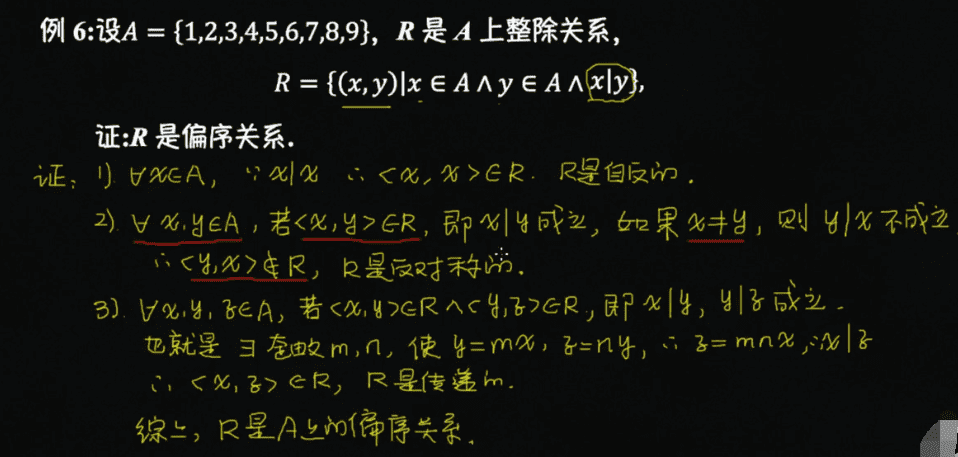 例 6:设A = {1,2,3,4,5,6,7,8,9}, R 是 A 上整除关系,
R = {(x,y)|x ∈ A ∧ y ∈ A ∧ x|y},
证:R 是偏序关系.
证: 1). ∀x∈A, ∵ x|x ∴ <x, x>∈R. R是自反的.
2). ∀ x,y∈A, 若<x,y>∈R, 即 x|y 成立, 如果 x≠y, 则 y|x 不成立
∴ <y,x>∉R, R是反对称的.
3). ∀x,y,z∈A, 若<x,y>∈R∧<y,z>∈R, 即 x|y, y|z 成立.
也就是 ∃ 整数 m,n, 使 y=mx, z=ny, ∴ z=mnx, ∴x|z
∴ <x,z>∈R, R是传递的.
综上, R是A上的偏序关系.